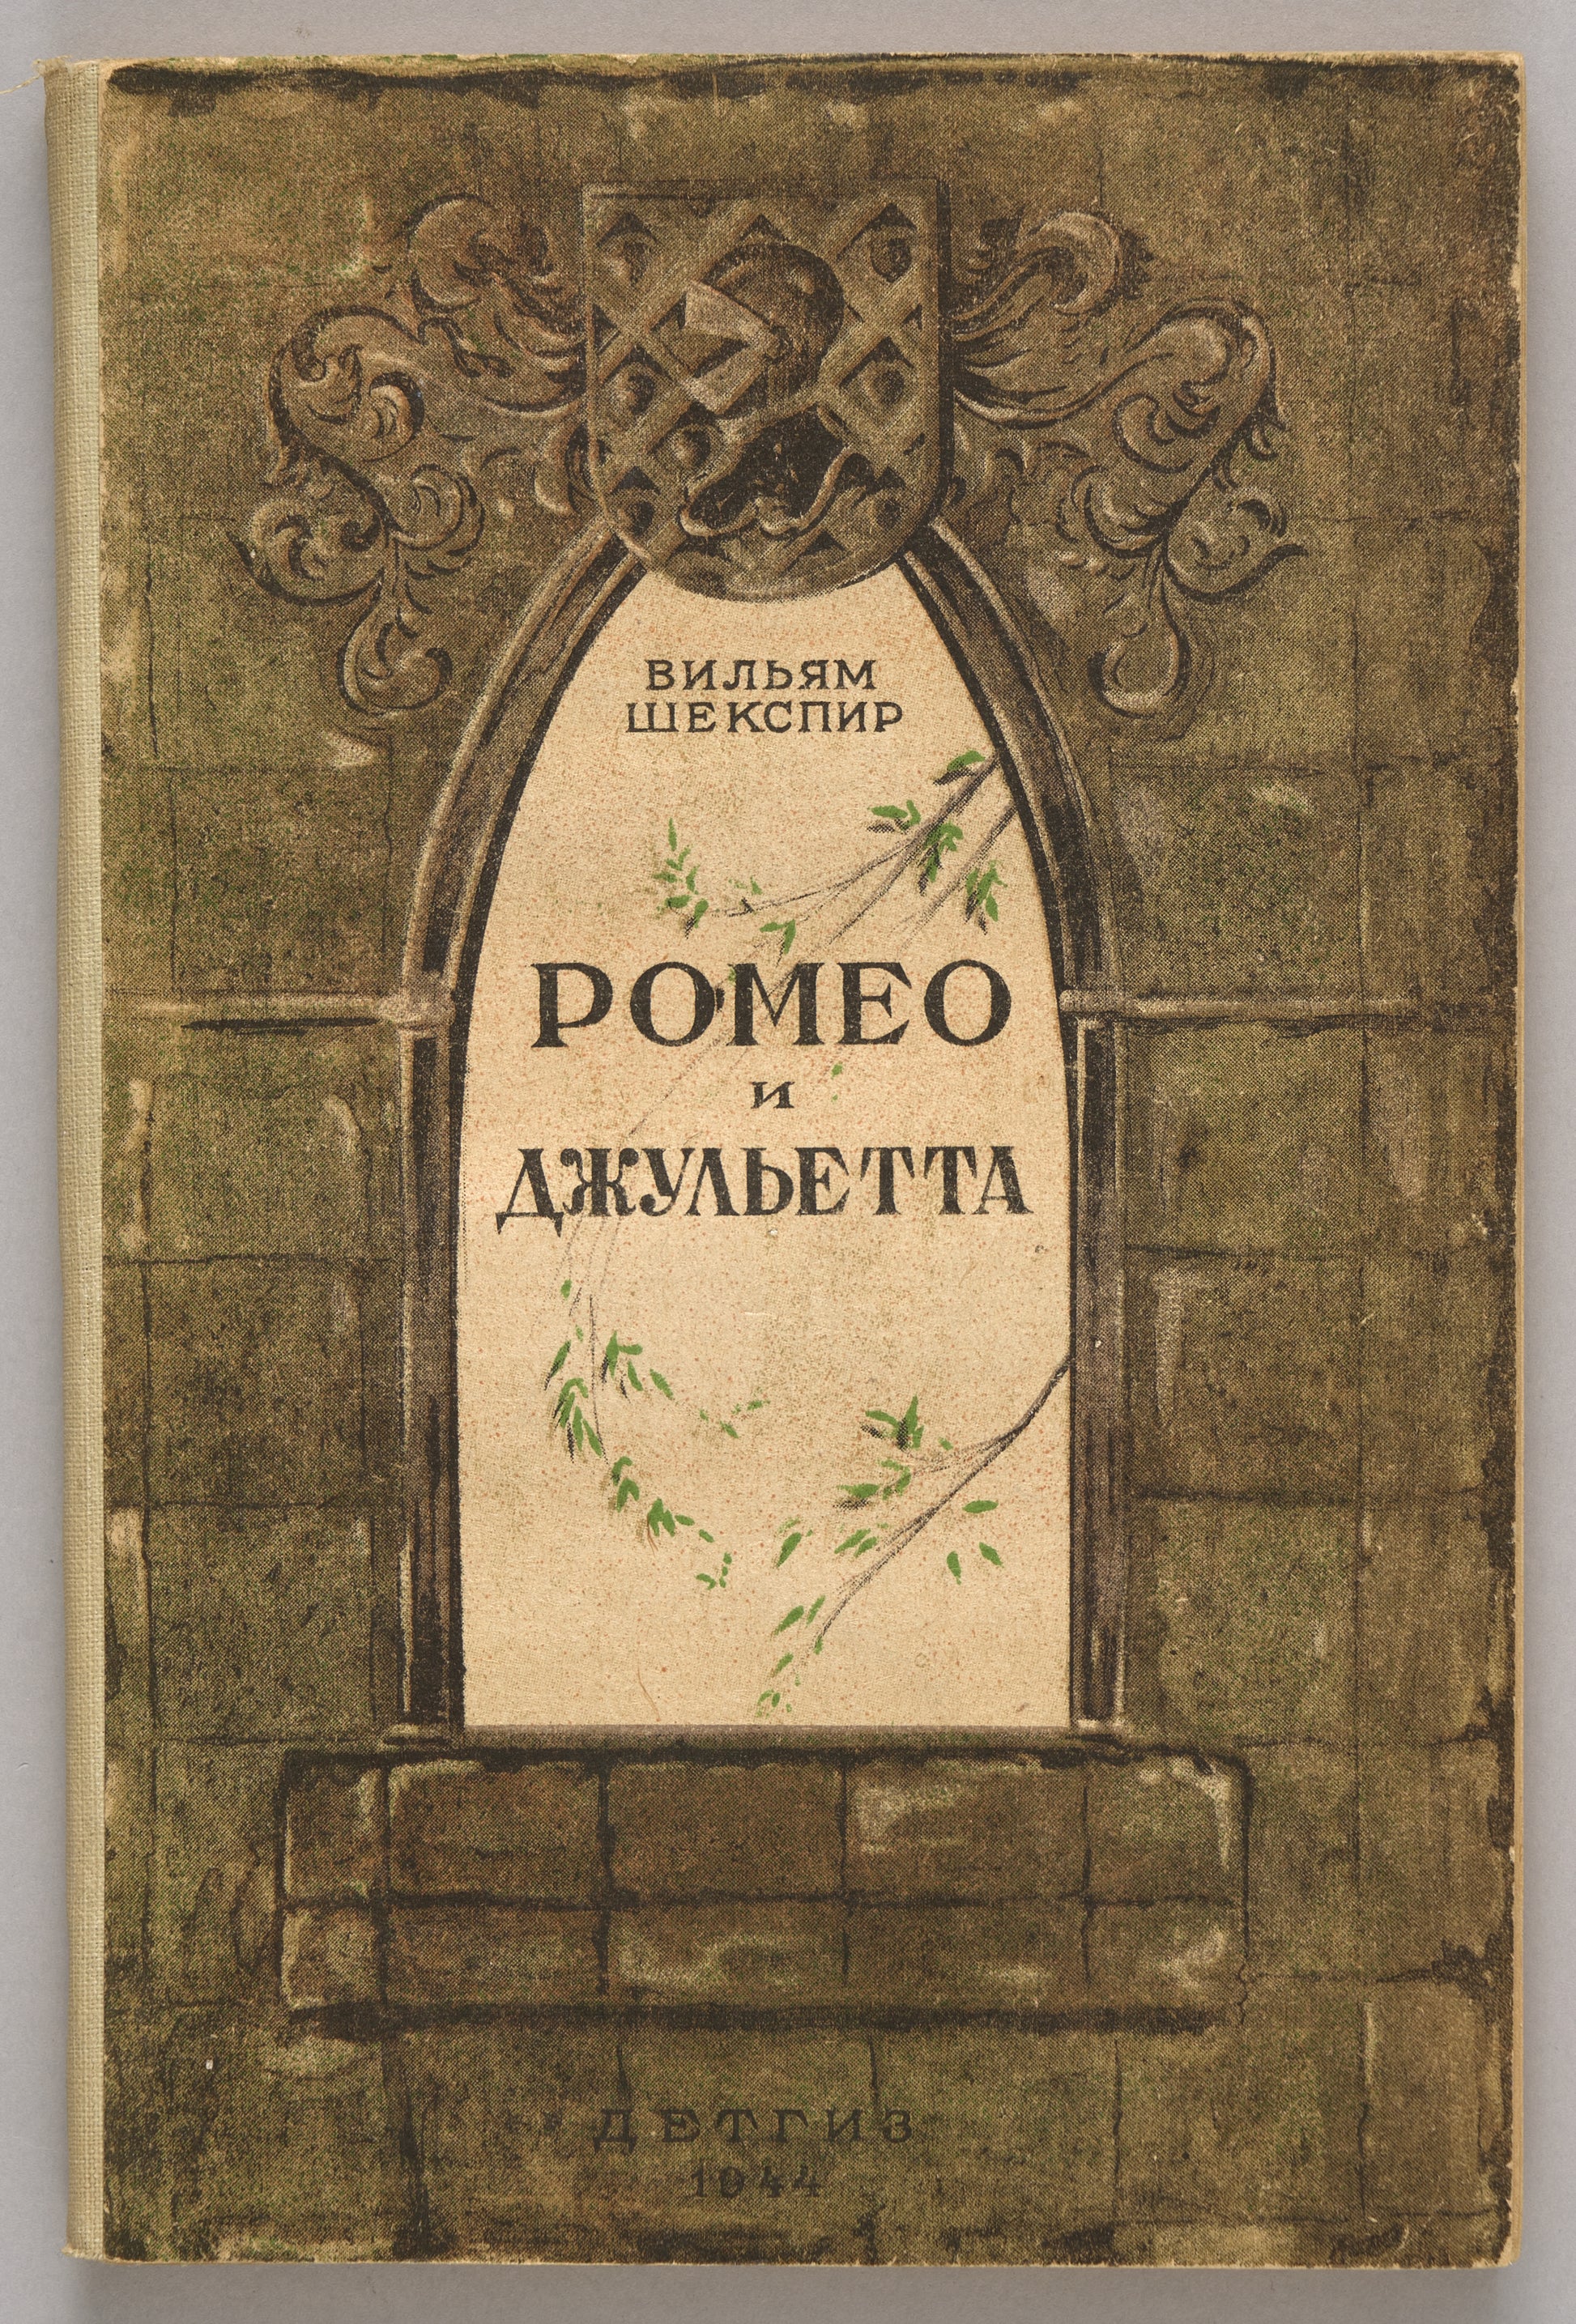 ВИЛЬЯМ
ШЕКСПИР
РОМЕО
и
ДЖУЛЬЕТТА
ДЕТГИЗ
1944